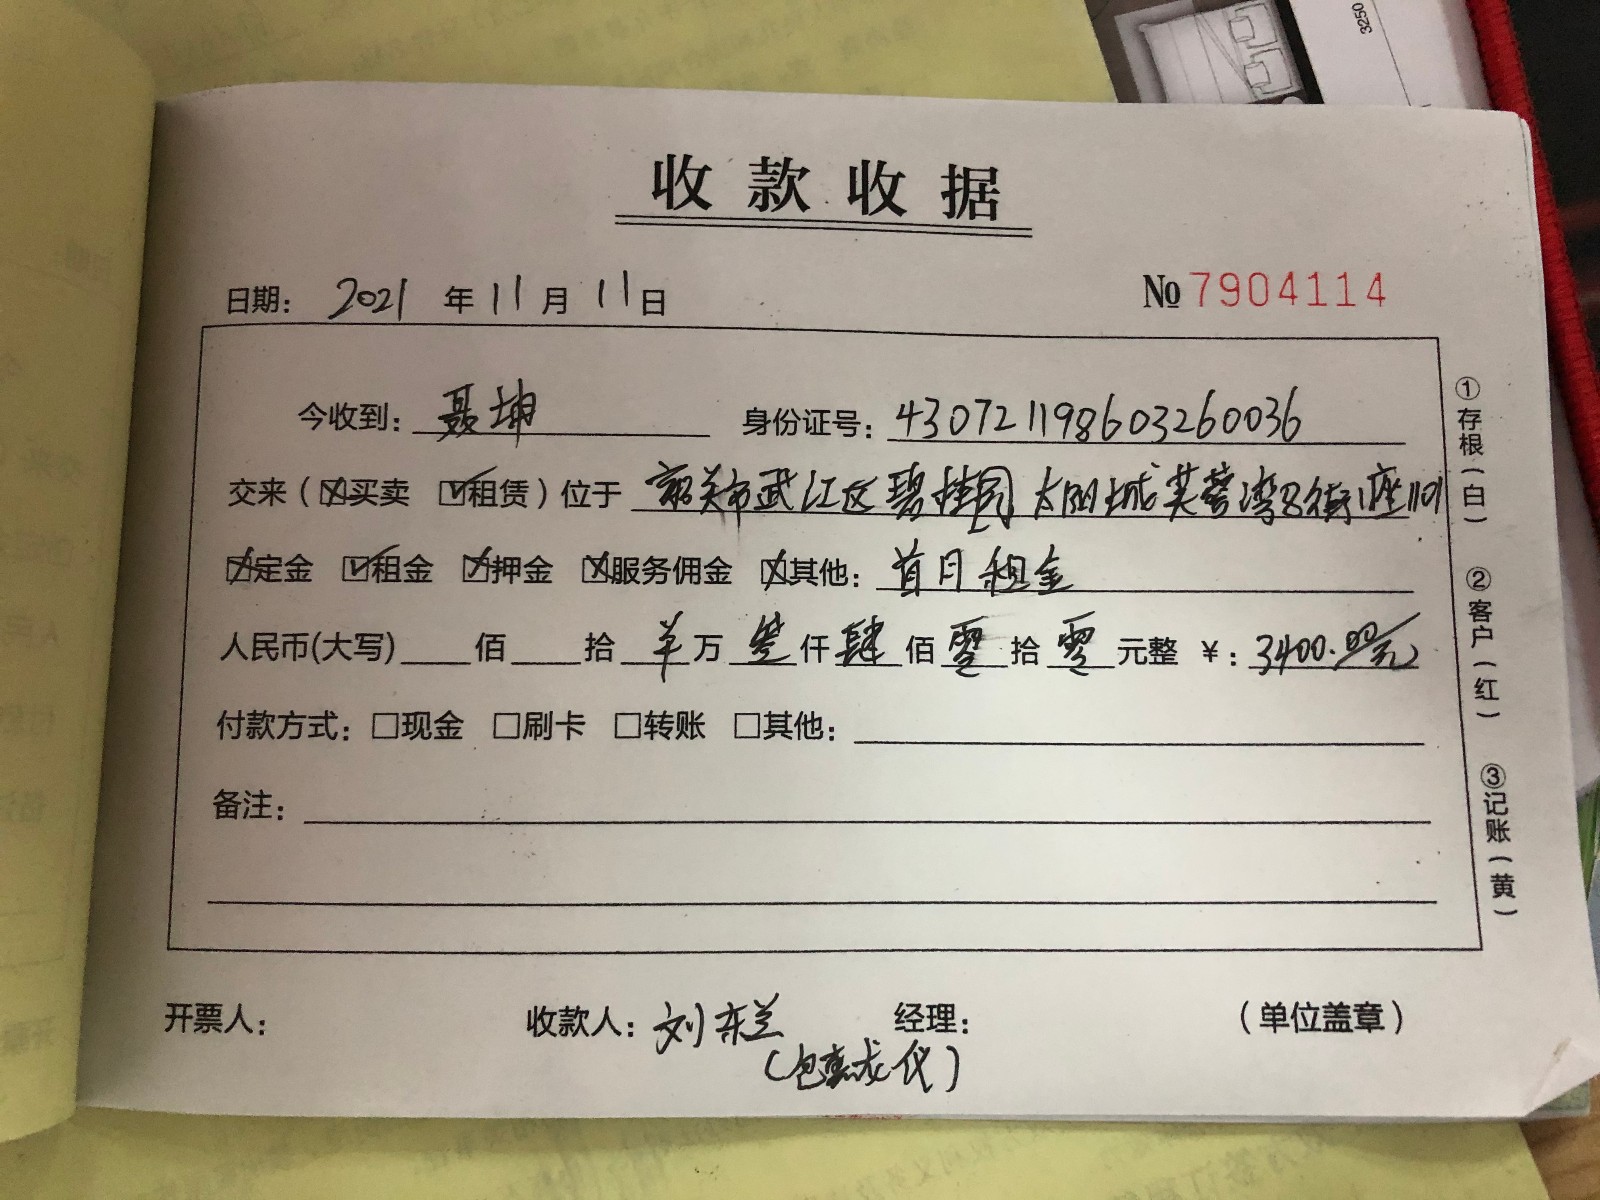 3250
收款收据
日期： 2021 年 11 月 11 日 № 7904114
今收到：聂坤 身份证号：430721198603260036
交来（☒买卖 ☑租赁）位于 韶关市武江区碧桂园太阳城芙蓉湾8街1座1101
☒定金 ☑租金 ☒押金 ☒服务佣金 ☒其他：首月租金
人民币(大写) 佰 拾 羊 万 叁 仟 肆 佰 零 拾 零 元整 ￥：3400.00元
付款方式：□现金 □刷卡 □转账 □其他：
备注：
开票人： 收款人：刘东兰 经理： （单位盖章）
①存根（白） ②客户（红） ③记账（黄）